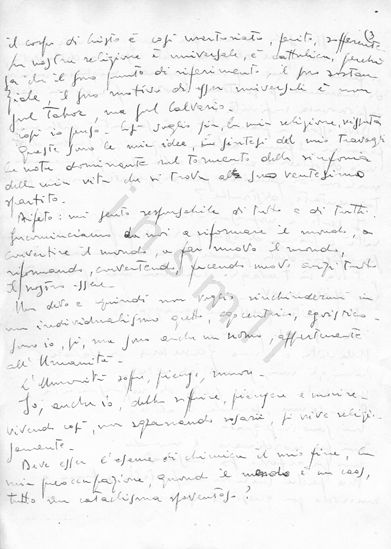 il corpo di Cristo è così martoriato, ferito, sofferente.
La nostra religione è universale, è cattolica, perché
già il suo punto di riferimento, il suo sostan
ziale, il suo motivo di esser universale è non
sul Tabor, ma sul Calvario.
Così io penso. Così voglio sia la mia religione, vissuta
Queste sono le mie idee, la sintesi del mio travaglio
la nota dominante nel tormento della sinfonia
della mia vita che si trova al suo ventesimo
spartito.
Ripeto: mi sento responsabile di tutto e di tutti.
Incominciamo da noi a riformare il mondo, a
convertire il mondo, a far nuovo il mondo,
riformando, convertendo, facendo nuovo anzitutto
il nostro essere.
Non devo e quindi non voglio rinchiudermi in
un individualismo gretto, egocentrico, egoistico.
Sono io, sì, ma sono anche un uomo, appartenente
all'Umanità.
L'Umanità soffre, piange, muore.
Io, anche io, debbo soffrire, piangere e morire.
vivendo così, non sgranando rosari, si vive religio
samente.
Deve esser l'esame di chimica il mio fine, la
mia preoccupazione, quando il mondo è un caos,
tutto un cataclisma spaventoso?
inSmli